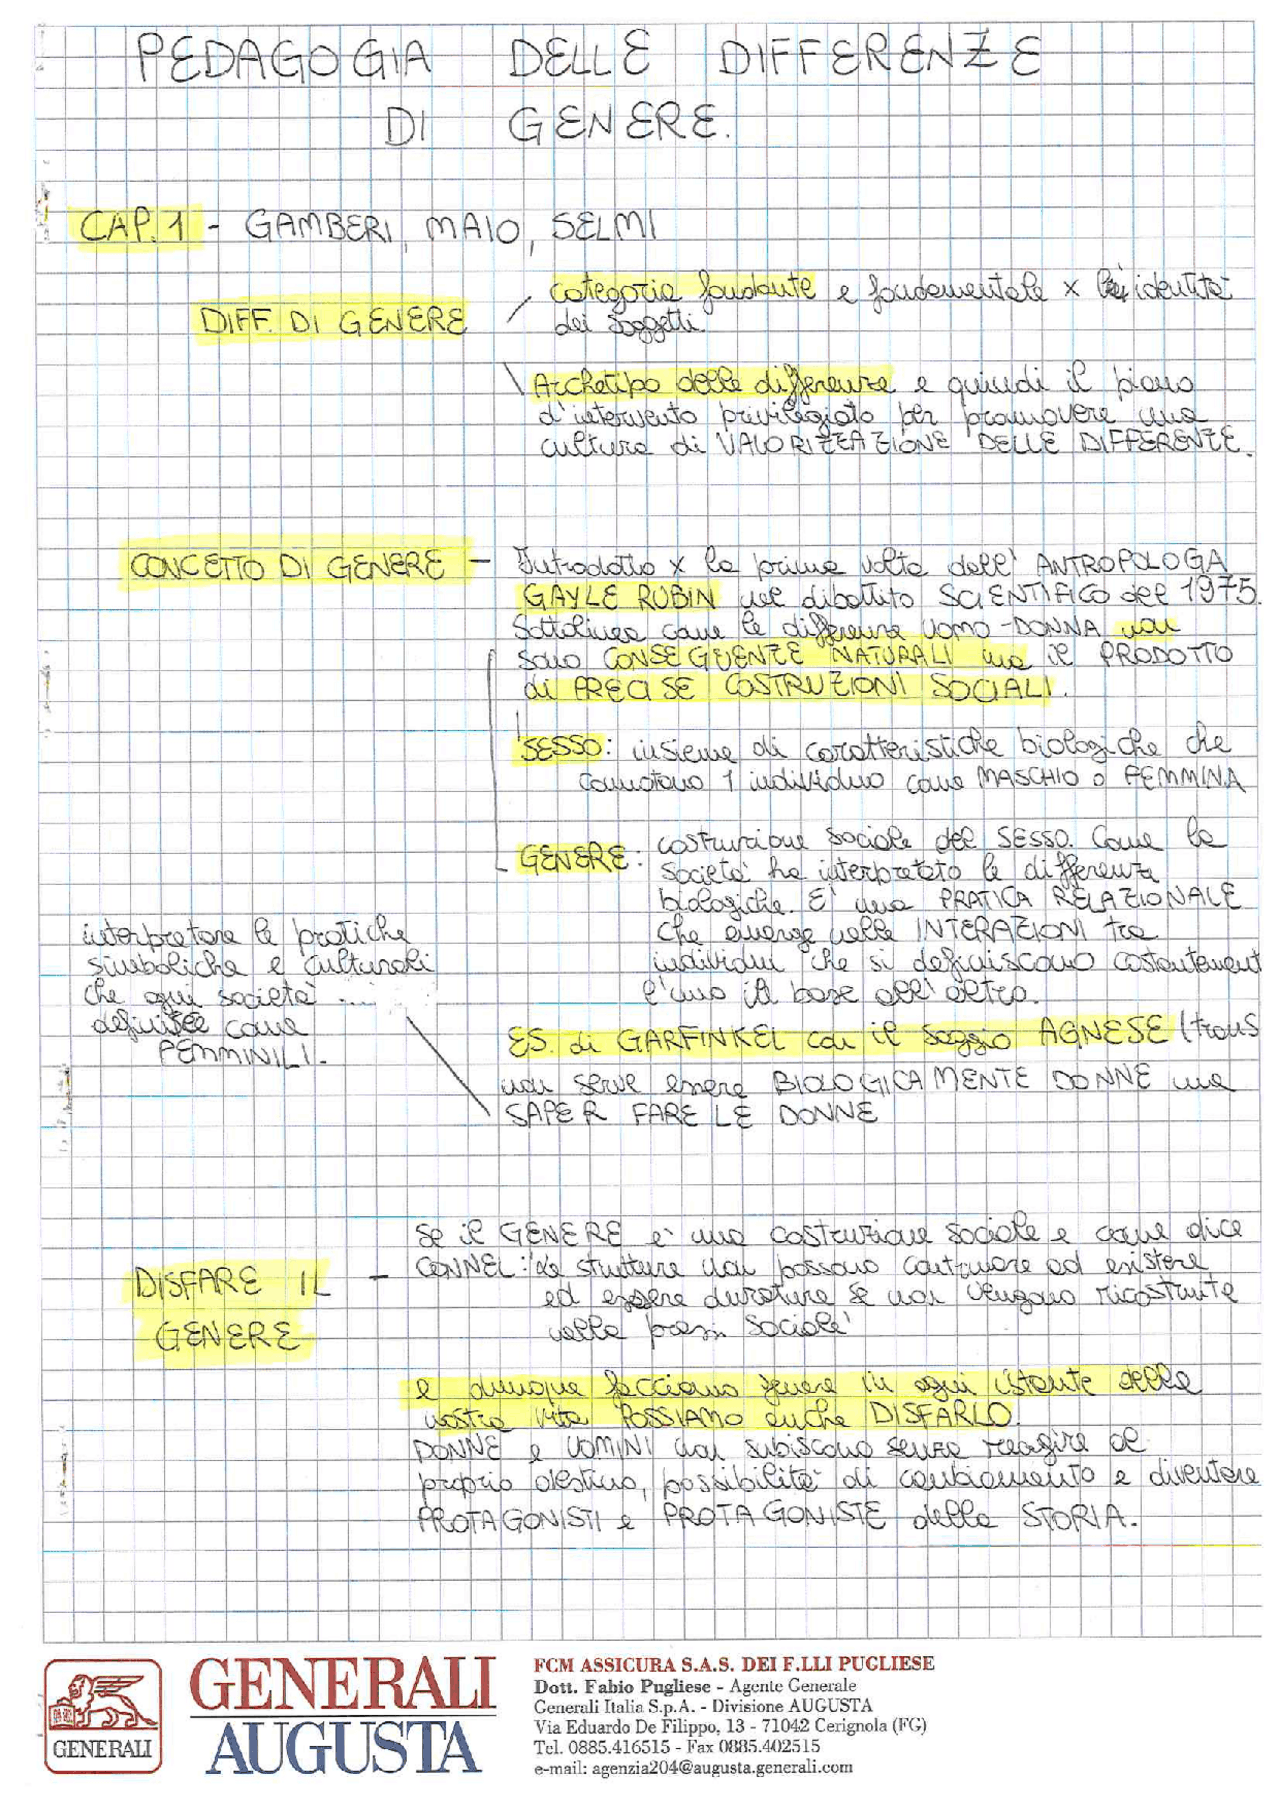 PEDAGOGIA DELLE DIFFERENZE
DI GENERE.
CAP. 1 - GAMBERI, MAIO, SELMI
DIFF. DI GENERE
categoria fondante e fondamentale x identità
dei soggetti.
Archetipo delle differenze e quindi il piano
d'intervento privilegiato per promuovere una
cultura di VALORIZZAZIONE DELLE DIFFERENZE.
CONCETTO DI GENERE - Introdotto x la prima volta dall' ANTROPOLOGA
GAYLE RUBIN nel dibattito SCIENTIFICO del 1975.
Sottolinea come le differenze UOMO-DONNA non
sono CONSEGUENZE NATURALI ma il PRODOTTO
di PRECISE COSTRUZIONI SOCIALI.
SESSO: insieme di caratteristiche biologiche che
connotano 1 individuo come MASCHIO o FEMMINA
GENERE: costruzione sociale del SESSO. Come la
società ha interpretato le differenze
biologiche. E' una PRATICA RELAZIONALE
che emerge nelle INTERAZIONI tra
individui che si definiscono costantement
l'uno in base all'altro.
interpretare le pratiche
simboliche e culturali
che ogni società ....
definisce come
FEMMINILI.
ES. di GARFINKEL con il saggio AGNESE (trans
non serve essere BIOLOGICAMENTE DONNE ma
SAPER FARE LE DONNE
DISFARE IL
GENERE
- Se il GENERE e' una costruzione sociale e come dice
CONNEL: "Le strutture non possono continuare ad esistere
ed essere durature se non vengono ricostruite
nella prassi sociale"
e dunque facciamo genere in ogni istante della
nostra vita POSSIAMO anche DISFARLO.
DONNE e UOMINI non subiscono senza reagire al
proprio destino, possibilità di cambiamento e diventare
PROTAGONISTI e PROTAGONISTE della STORIA.
GENERALI
GENERALI
AUGUSTA
FCM ASSICURA S.A.S. DEI F.LLI PUGLIESE
Dott. Fabio Pugliese - Agente Generale
Generali Italia S.p.A. - Divisione AUGUSTA
Via Eduardo De Filippo, 13 - 71042 Cerignola (FG)
Tel. 0885.416515 - Fax 0885.402515
e-mail: agenzia204@augusta.generali.com